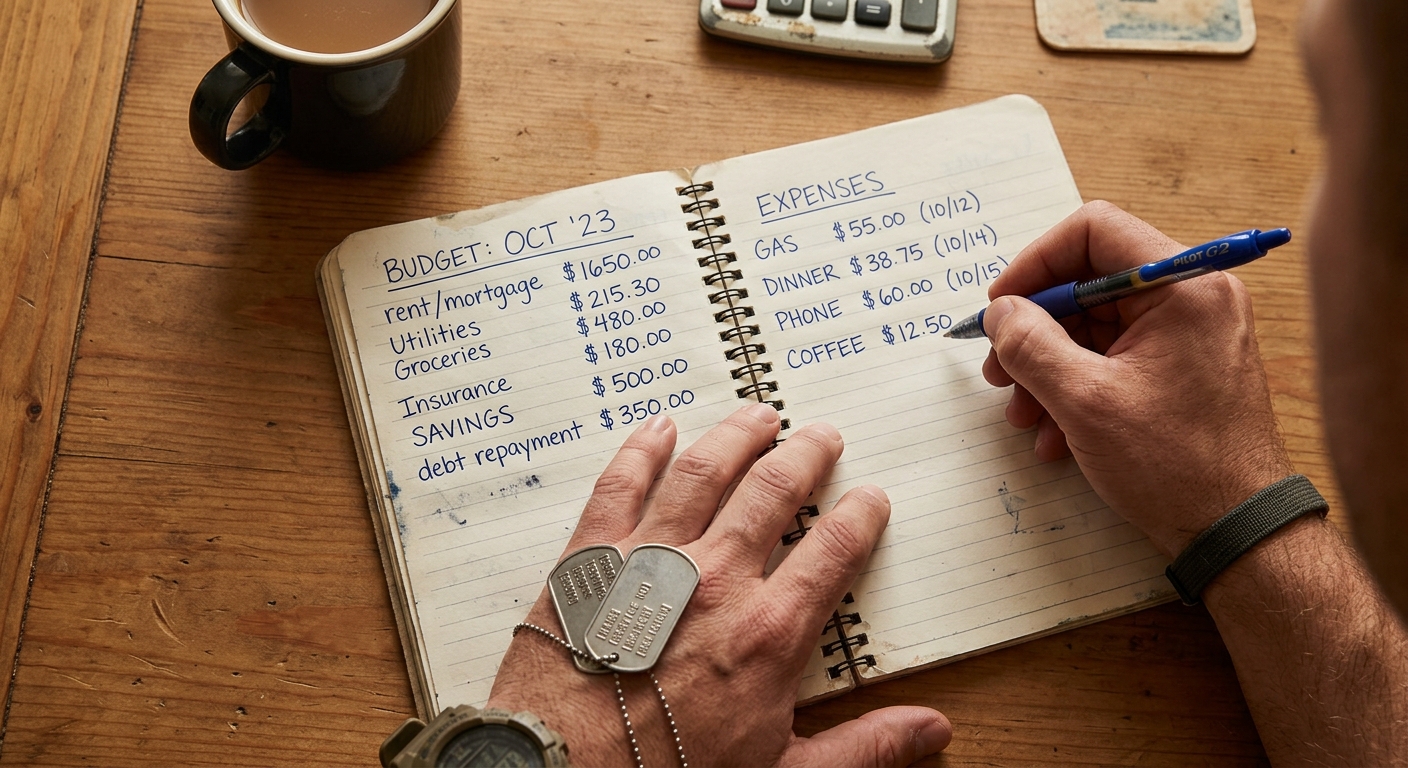 BUDGET: OCT '23
rent/mortgage $1650.00
Utilities $215.30
Groceries $480.00
Insurance $180.00
SAVINGS $500.00
debt repayment $350.00
EXPENSES
GAS $55.00 (10/12)
DINNER $38.75 (10/14)
PHONE $60.00 (10/15)
COFFEE $12.50
PILOT G2